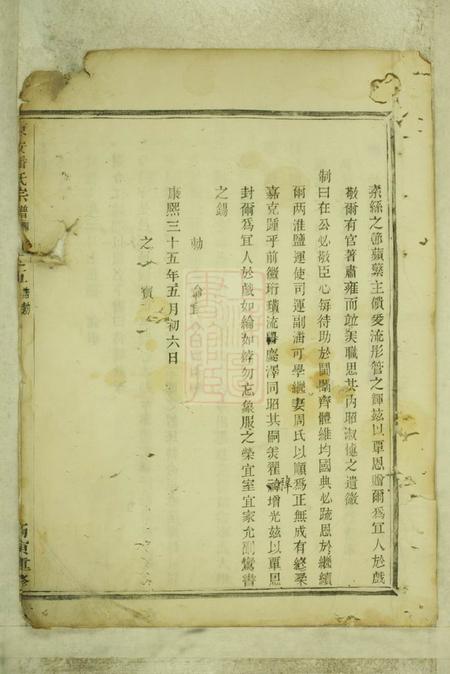 素絲之節蘋蘩主饋爰流彤管之輝茲以覃恩贈爾為宜人於戲
敬爾有官著肅雍而竝美職思其內昭淑愼之遺徽
制曰在公必敬臣心每待助於閫闈齊體維均國典必疏恩於繼續
爾兩淮鹽運使司運副潘可學繼妻周氏以順為正無成有終柔
嘉克踵乎前徽珩璜流慶澤同昭其嗣美翟褘增光茲以覃恩
封爾為宜人於戲如綸如綍勿忘象服之榮宜室宜家允副鸞書
之錫
勅命
康熙三十五年五月初六日
之寶
潘氏宗譜
丙寅重修